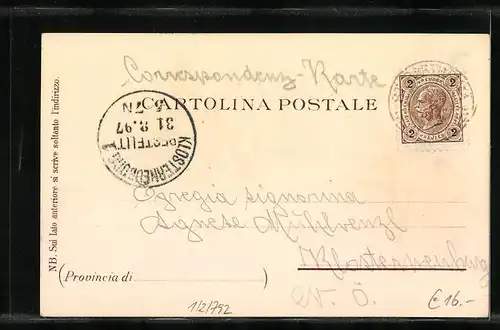 Correspondenz-Karte
CARTOLINA POSTALE
2 2
2 2
KLOSTERNEUBURG
31.8.97
NB. Sul lato anteriore si scrive soltanto l'indirizzo.
Egregia signorina
Agnese Mühlwenzl
Klosterneuburg
N. Ö.
(Provincia di )
1/2/792
€ 16.-